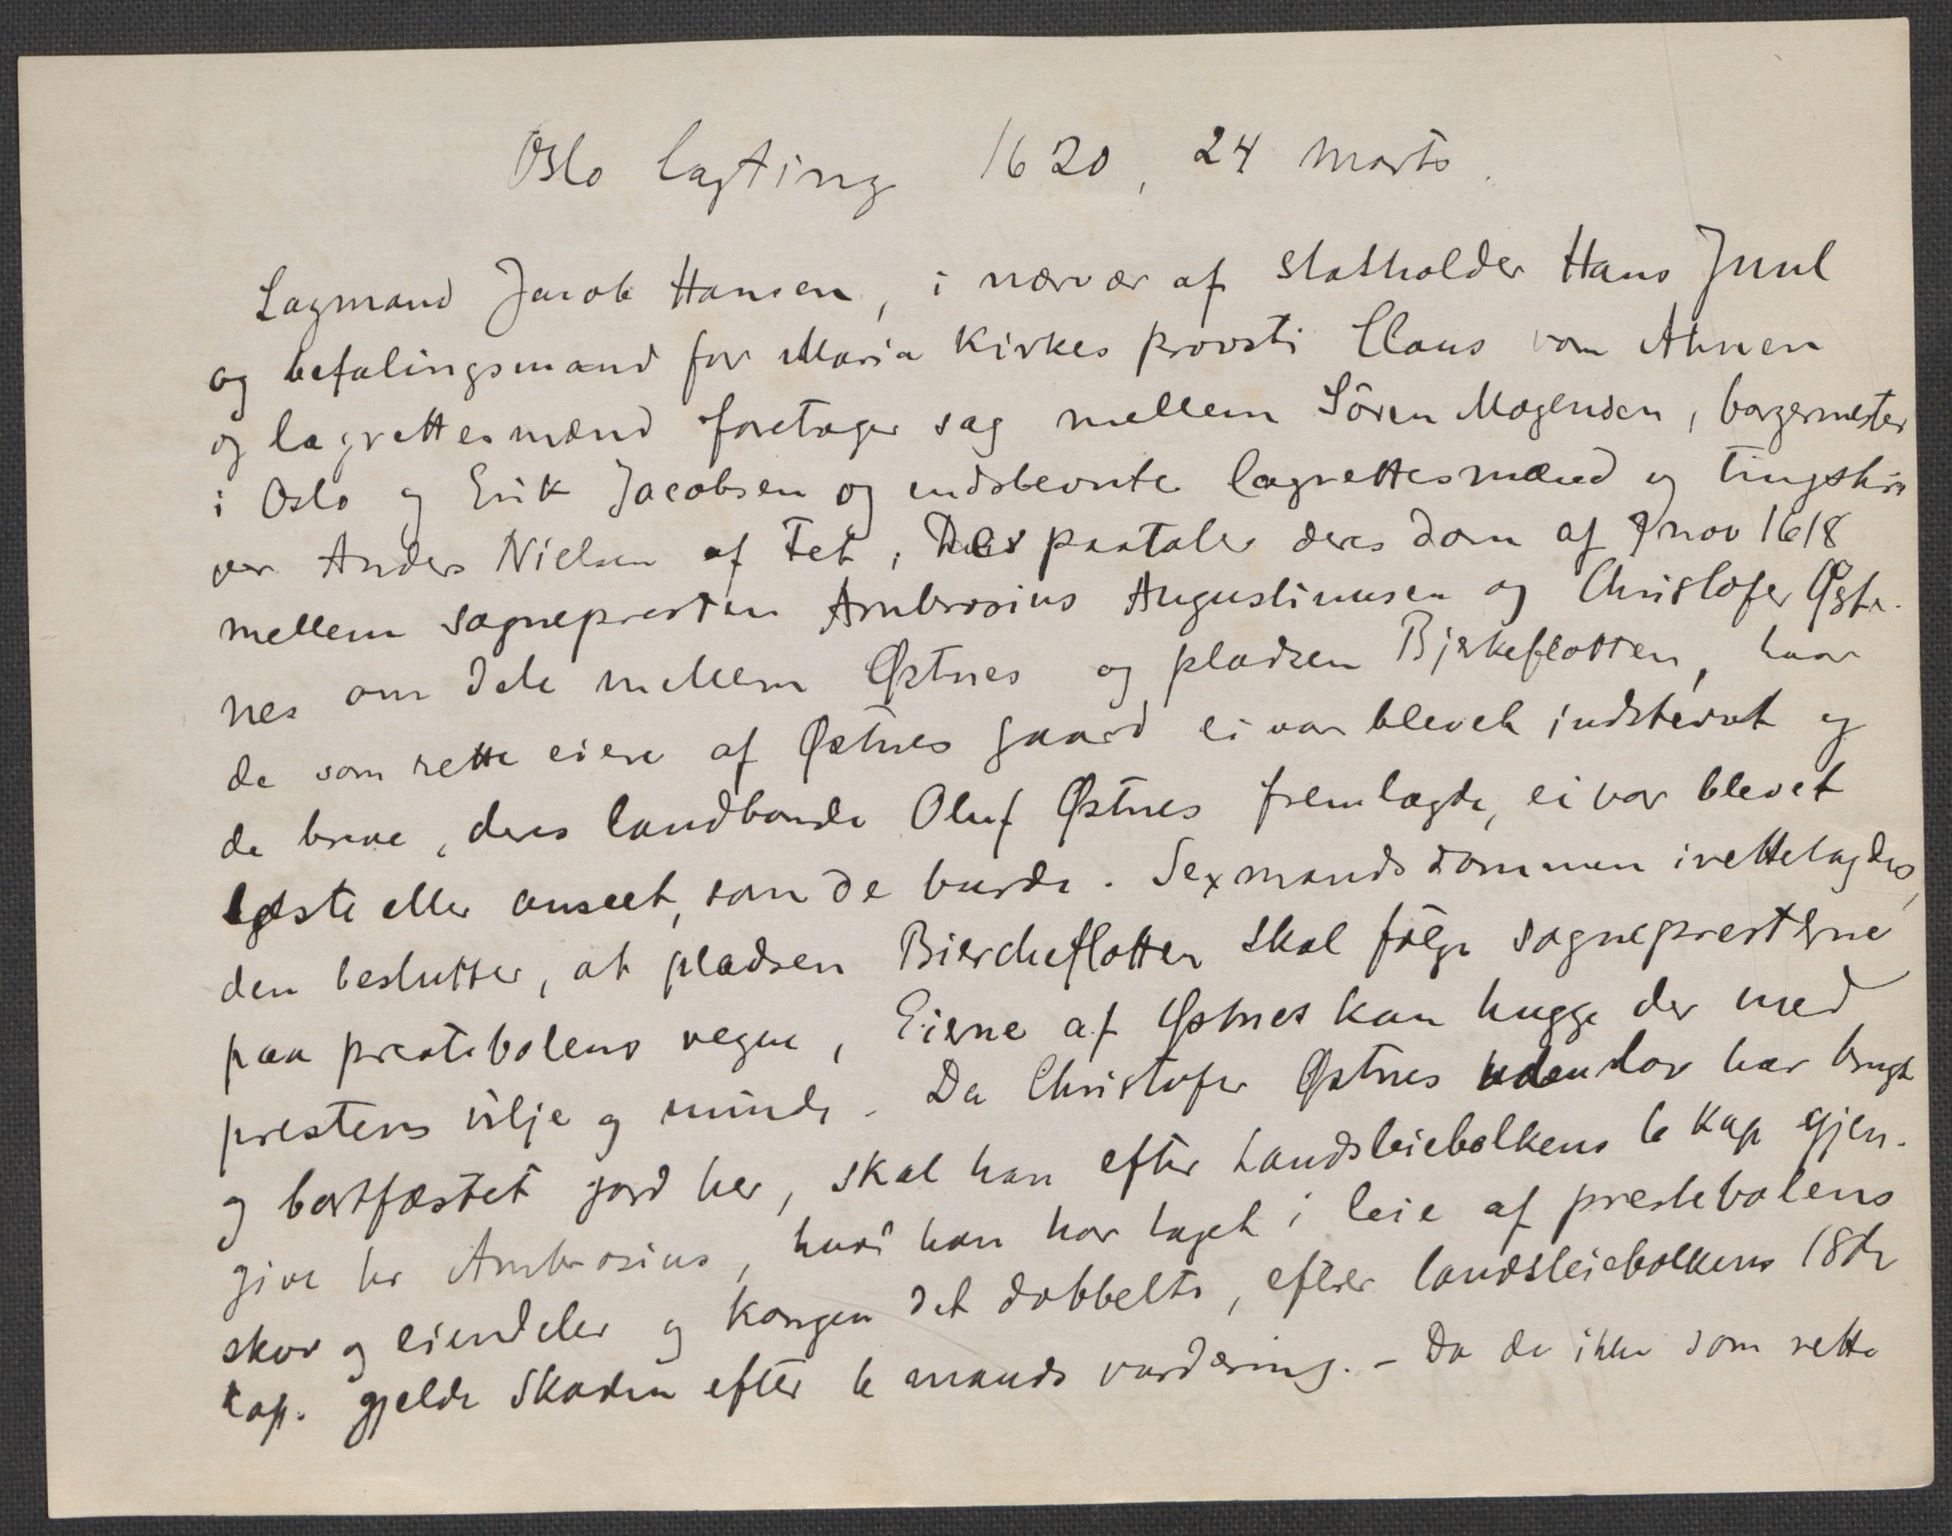 Oslo lagting 1620, 24 marts.
Lagmand Jacob Hansen, i nærvær af statholder Hans Juul
og befalingsmand for Maria kirkes provsti Claus von Ahnen
og lagrettesmænd foretager sag mellem Sören Mogensen, borgermester
i Oslo og Erik Jacobsen og endsbevnte lagrettesmænd og tingskri
ver Anders Nielsen af Fet, paataler deres dom af 9 nov 1618
mellem sognepresten Ambrosius Augustinusen og Christofer Østr-
nes om dele mellem Østnes og pladsen Bjerkeflotten, hvor
de som rette eiere af Østnes gaard ei var blevet indstevnt og
de breve, deres landbonde Oluf Østnes fremlagde, ei var blevet
læste eller anseet, som de burde. Sexmandsdommen irettelagdes,
den beslutter, at pladsen Biercheflotten skal følge sogneprestene
paa prestebolens vegne, Eierne af Østnes kan hugge der med
prestens vilje og minde. Da Christofer Østnes uden lov har brugt
og bortfæstet jord her, skal han efter Landsleiebolkens 6 kap gjen-
give hr Ambrosius, hvad han har taget i leie af prestebolens
skov og eiendeler og kongen det dobbelte, efter landsleiebolkens 18de
kap. gjelde skaden efter 6 mands vurdering. - Da de ikke som rette